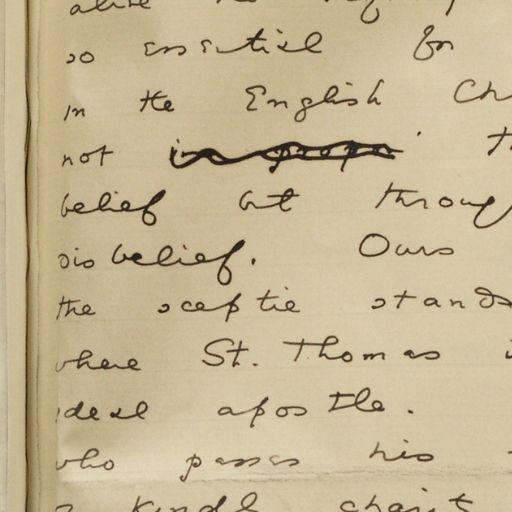 so essential for
in the English Ch
not th
belief but throug
disbelief. Ours
the sceptic stands
where St. Thomas i
ideal apostle.
who passes his